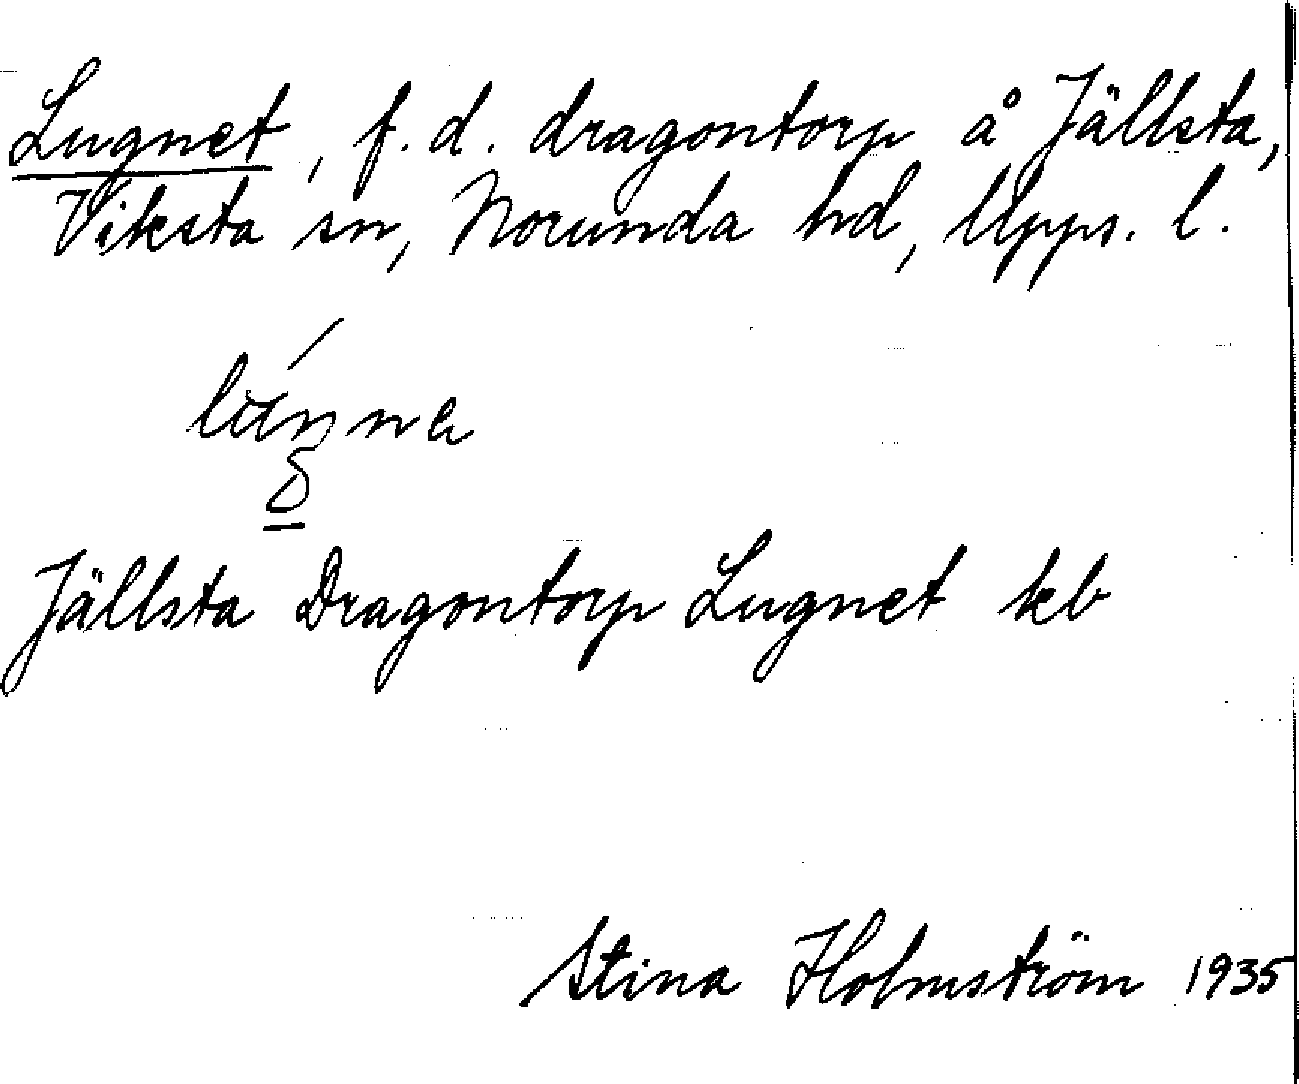 Lugnet, f. d. dragontorp å Jällsta,
Viksta sn, Norunda hd, Upps. l.
Jällsta Dragontorp Lugnet kb
Stina Holmström 1935